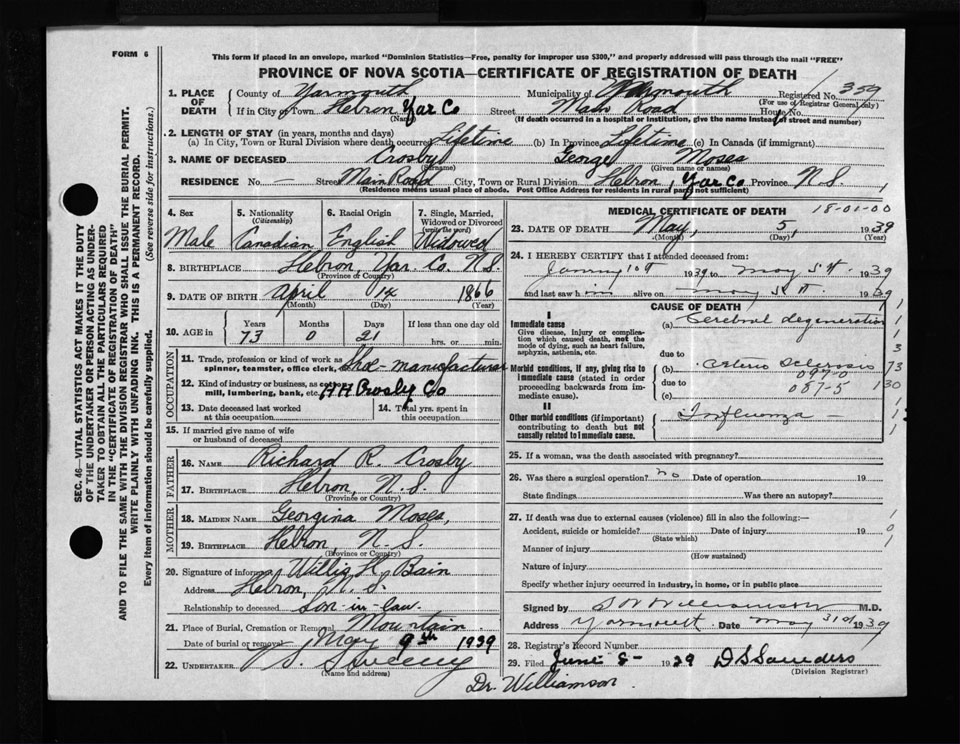 FORM 6
This form if placed in an envelope, marked "Dominion Statistics—Free, penalty for improper use $300," and properly addressed will pass through the mail "FREE"
PROVINCE OF NOVA SCOTIA—CERTIFICATE OF REGISTRATION OF DEATH
SEC. 46—VITAL STATISTICS ACT MAKES IT THE DUTY
OF THE UNDERTAKER OR PERSON ACTING AS UNDER-
TAKER TO OBTAIN ALL THE PARTICULARS REQUIRED
IN THE "CERTIFICATE OF REGISTRATION OF DEATH"
AND TO FILE THE SAME WITH THE DIVISION REGISTRAR WHO SHALL ISSUE THE BURIAL PERMIT.
WRITE PLAINLY WITH UNFADING INK. THIS IS A PERMANENT RECORD.
Every item of information should be carefully supplied. (See reverse side for instructions.)
1. PLACE OF DEATH
County of Yarmouth Municipality of Yarmouth Registered No. 359
(For use of Registrar General only)
If in City or Town Hebron Yar Co Street Main Road House No.
(Name) (If death occurred in a hospital or institution, give the name instead of street and number)
2. LENGTH OF STAY (in years, months and days)
(a) In City, Town or Rural Division where death occurred Lifetime (b) In Province Lifetime (c) In Canada (if immigrant)
3. NAME OF DECEASED Crosby George Moses
(Surname) (Given name or names)
RESIDENCE No. — Street Main Road City, Town or Rural Division Hebron, Yar Co Province N.S.
(Residence means usual place of abode. Post Office Address for residents in rural parts not sufficient)
4. Sex 5. Nationality (Citizenship) 6. Racial Origin 7. Single, Married, Widowed or Divorced (write the word)
Male Canadian English Widowed
8. BIRTHPLACE Hebron, Yar. Co. N.S.
(Province or Country)
9. DATE OF BIRTH April 14 1866
(Month) (Day) (Year)
10. AGE in Years Months Days If less than one day old
73 0 21 hrs. or min.
OCCUPATION
11. Trade, profession or kind of work as spinner, teamster, office clerk, manufacturer
12. Kind of industry or business, as cotton mill, lumbering, bank, etc. Crosby Co
13. Date deceased last worked at this occupation
14. Total yrs. spent in this occupation
15. If married give name of wife or husband of deceased
FATHER
16. NAME Richard R. Crosby
17. BIRTHPLACE Hebron, N.S.
(Province or Country)
MOTHER
18. MAIDEN NAME Georgina Moses,
19. BIRTHPLACE Hebron N.S.
(Province or Country)
20. Signature of informant Willis H. Bain
Address Hebron, N.S.
Relationship to deceased Son-in-law.
21. Place of Burial, Cremation or Removal Mountain
Date of burial or removal May 9th 1939
22. UNDERTAKER Sweeny
(Name and address)
MEDICAL CERTIFICATE OF DEATH 18-01-00
23. DATE OF DEATH May, 5, 1939
(Month) (Day) (Year)
24. I HEREBY CERTIFY that I attended deceased from:
1939 to May 5th 1939
and last saw him alive on May 5th 1939
CAUSE OF DEATH
I
Immediate cause
Give disease, injury or complication which caused death, not the mode of dying, such as heart failure, asphyxia, asthenia, etc.
(a) Cerebral degeneration
due to
Morbid conditions, if any, giving rise to immediate cause (stated in order proceeding backwards from immediate cause).
(b) Arterio Sclerosis
due to
(c)
II
Other morbid conditions (if important) contributing to death but not causally related to immediate cause.
Influenza
25. If a woman, was the death associated with pregnancy?
26. Was there a surgical operation? no Date of operation 19
State findings Was there an autopsy?
27. If death was due to external causes (violence) fill in also the following:—
Accident, suicide or homicide? Date of injury 19
(State which)
Manner of injury
(How sustained)
Nature of injury
Specify whether injury occurred in industry, in home, or in public place
Signed by S W Williamson M.D.
Address Yarmouth Date May 31st 1939
28. Registrar's Record Number
29. Filed June 8- 1939 D S Saunders
(Division Registrar)
Dr. Williamson.